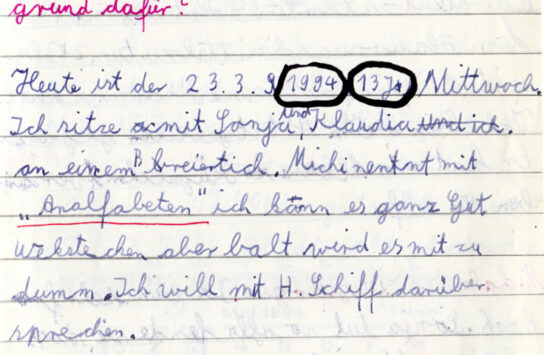 grund dafür?
Heute ist der 23.3.9 1994 13J. Mittwoch.
Ich sitze mit Sonja und Klaudia und ich.
an einem Breiertich. Michi nennt mit
„Analfabeten" ich kann es ganz Gut
Wekstechen aber balt wird es mit zu
dumm. Ich will mit H. Schiff darüber
sprechen.